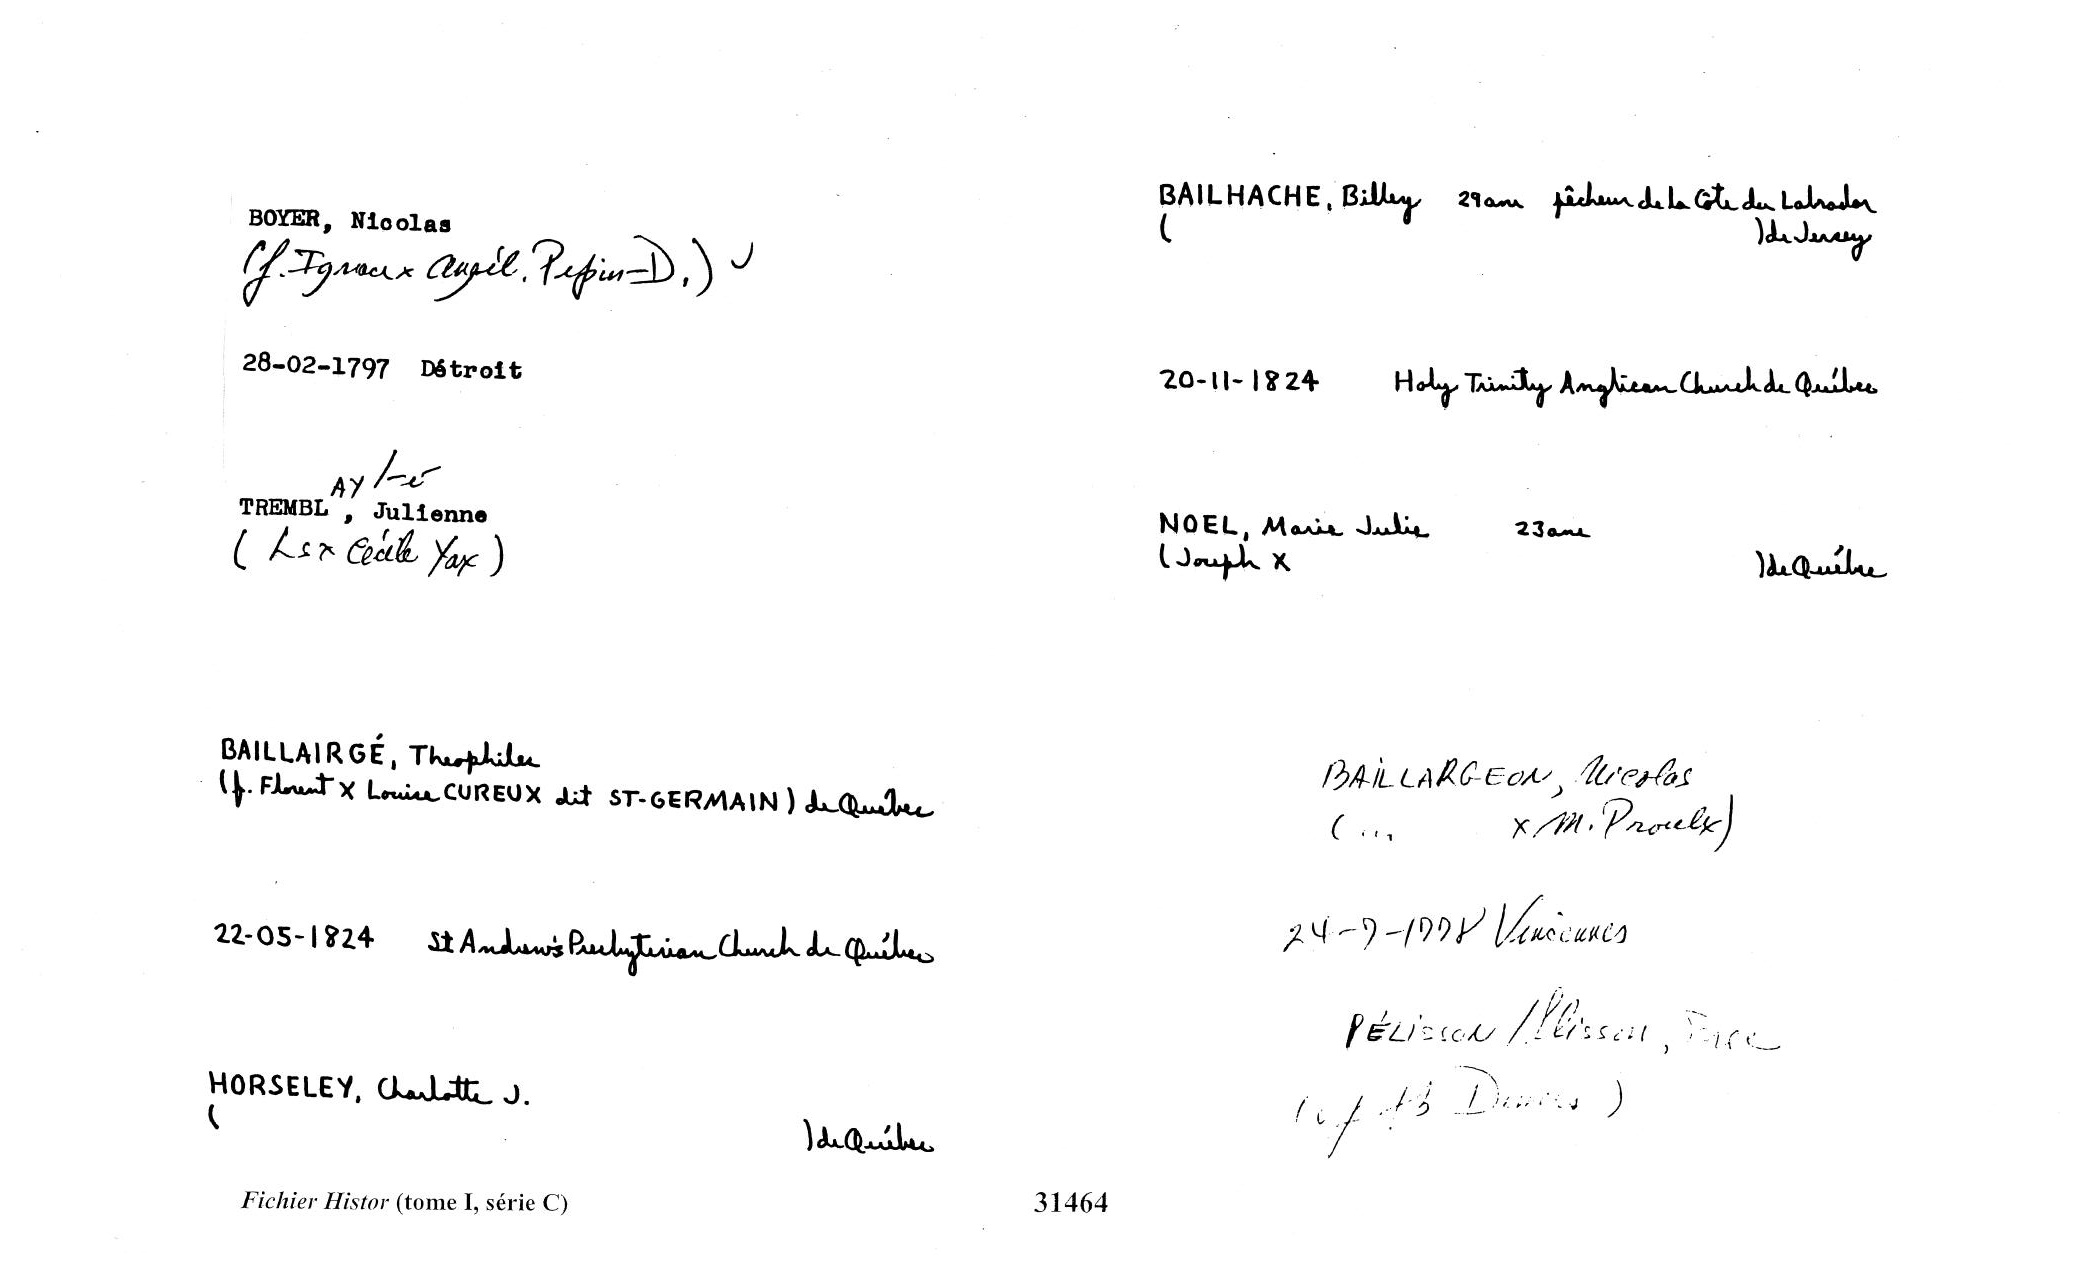 BOYER, Nicolas
(f. Ignace x Angél. Pepin-D.)
28-02-1797 Détroit
AY /-é
TREMBL , Julienne
(Ls x Cécile Yax)
BAILHACHE, Billey 29 ans pêcheur de la Côte du Labrador
( ) de Jersey
20-11-1824 Holy Trinity Anglican Church de Québec
NOEL, Marie Julie 23 ans
(Joseph X ) de Québec
BAILLAIRGÉ, Theophile
(f. Florent X Louise CUREUX dit ST-GERMAIN) de Québec
22-05-1824 St Andrew's Presbyterian Church de Québec
HORSELEY, Charlotte J.
( ) de Québec
BAILLARGEON, Nicolas
(... x M. Proulx)
24-7-1778 Vincennes
PÉLISSON / Plisson,
Fichier Histor (tome I, série C)
31464